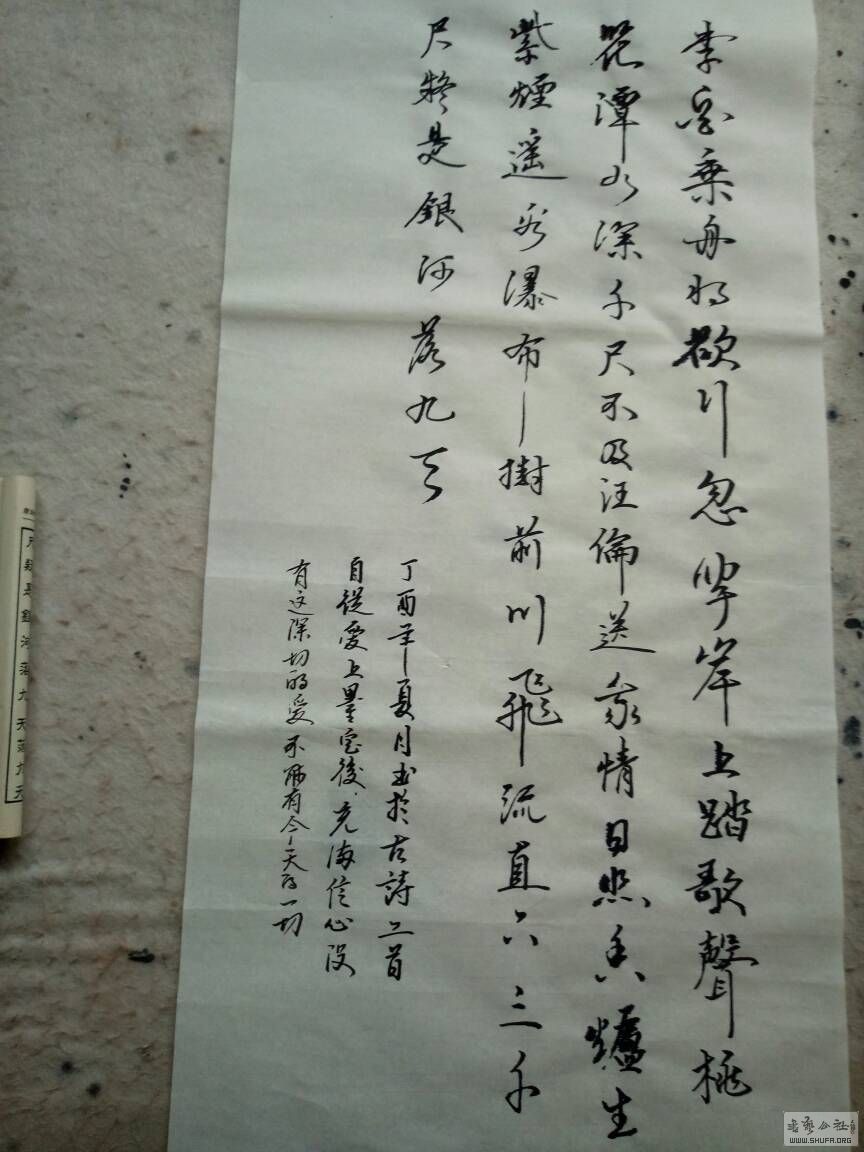 李白乘舟将欲行忽聞岸上踏歌聲桃
花潭水深千尺不及汪倫送我情日照香爐生
紫煙遥看瀑布樹前川飛流直下三千
尺疑是銀河落九天
丁酉年夏月書於古詩二首
自從愛上墨宝後，充满信心没
有这深切的爱不所有今天的一切
尺疑是銀河落九天落九天
書藝公社
WWW.SHUFA.ORG